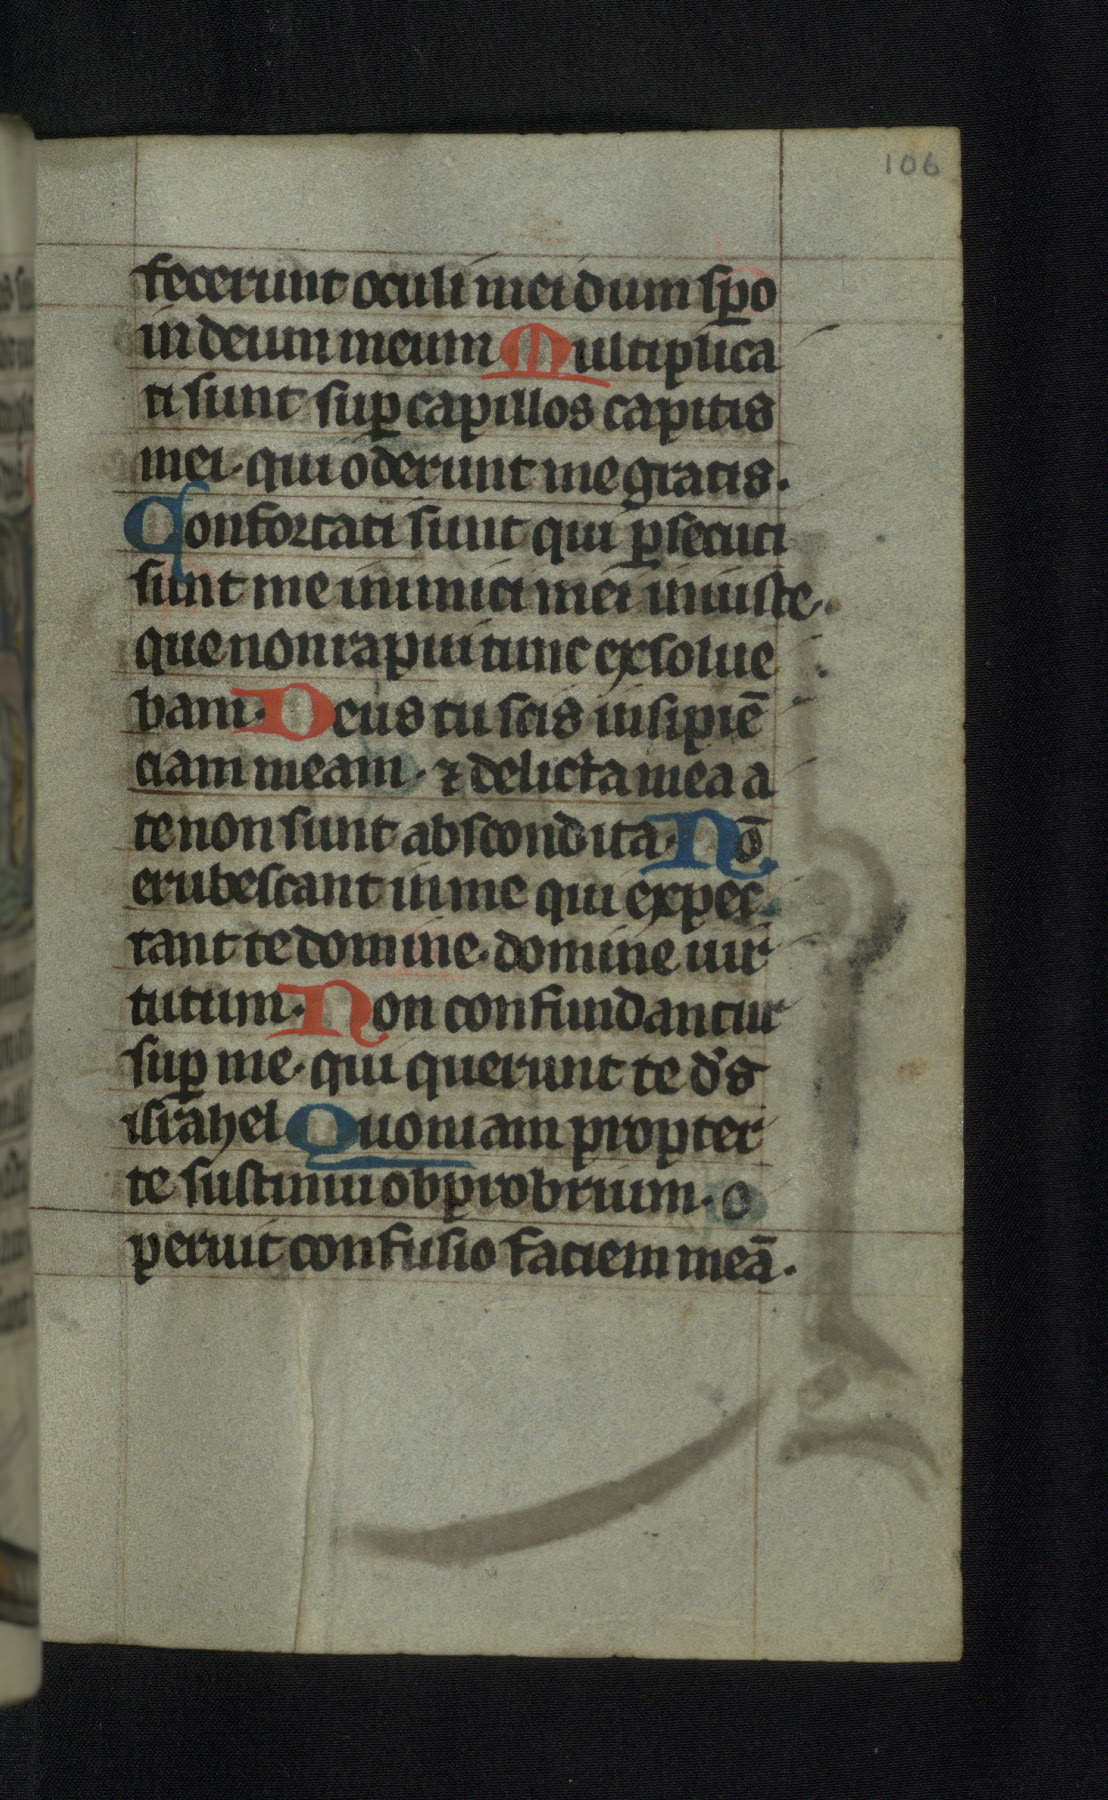 106
fecerunt oculi mei dum sꝑo
in deum meum Multiplica
ti sunt suꝑ capillos capitis
mei · qui oderunt me gratis ·
Confortati sunt qui ꝑsecuti
sunt me inimici mei iniuste ·
que non rapui tunc exsolue
bam · Deus tu scis insipiē
ciam meam · ⁊ delicta mea a
te non sunt abscondita · Nō
erubescant in me qui expec
tant te domine · domine uir
tutum · Non confundantur
suꝑ me · qui querunt te d's
israhel Quoniam propter
te sustinui obprobrium · o
peruit confusio faciem meā ·